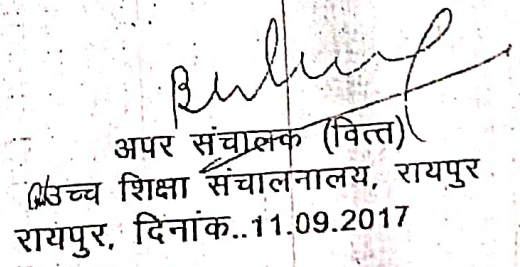 अपर संचालक (वित्त)
उच्च शिक्षा संचालनालय, रायपुर
रायपुर, दिनांक..11.09.2017